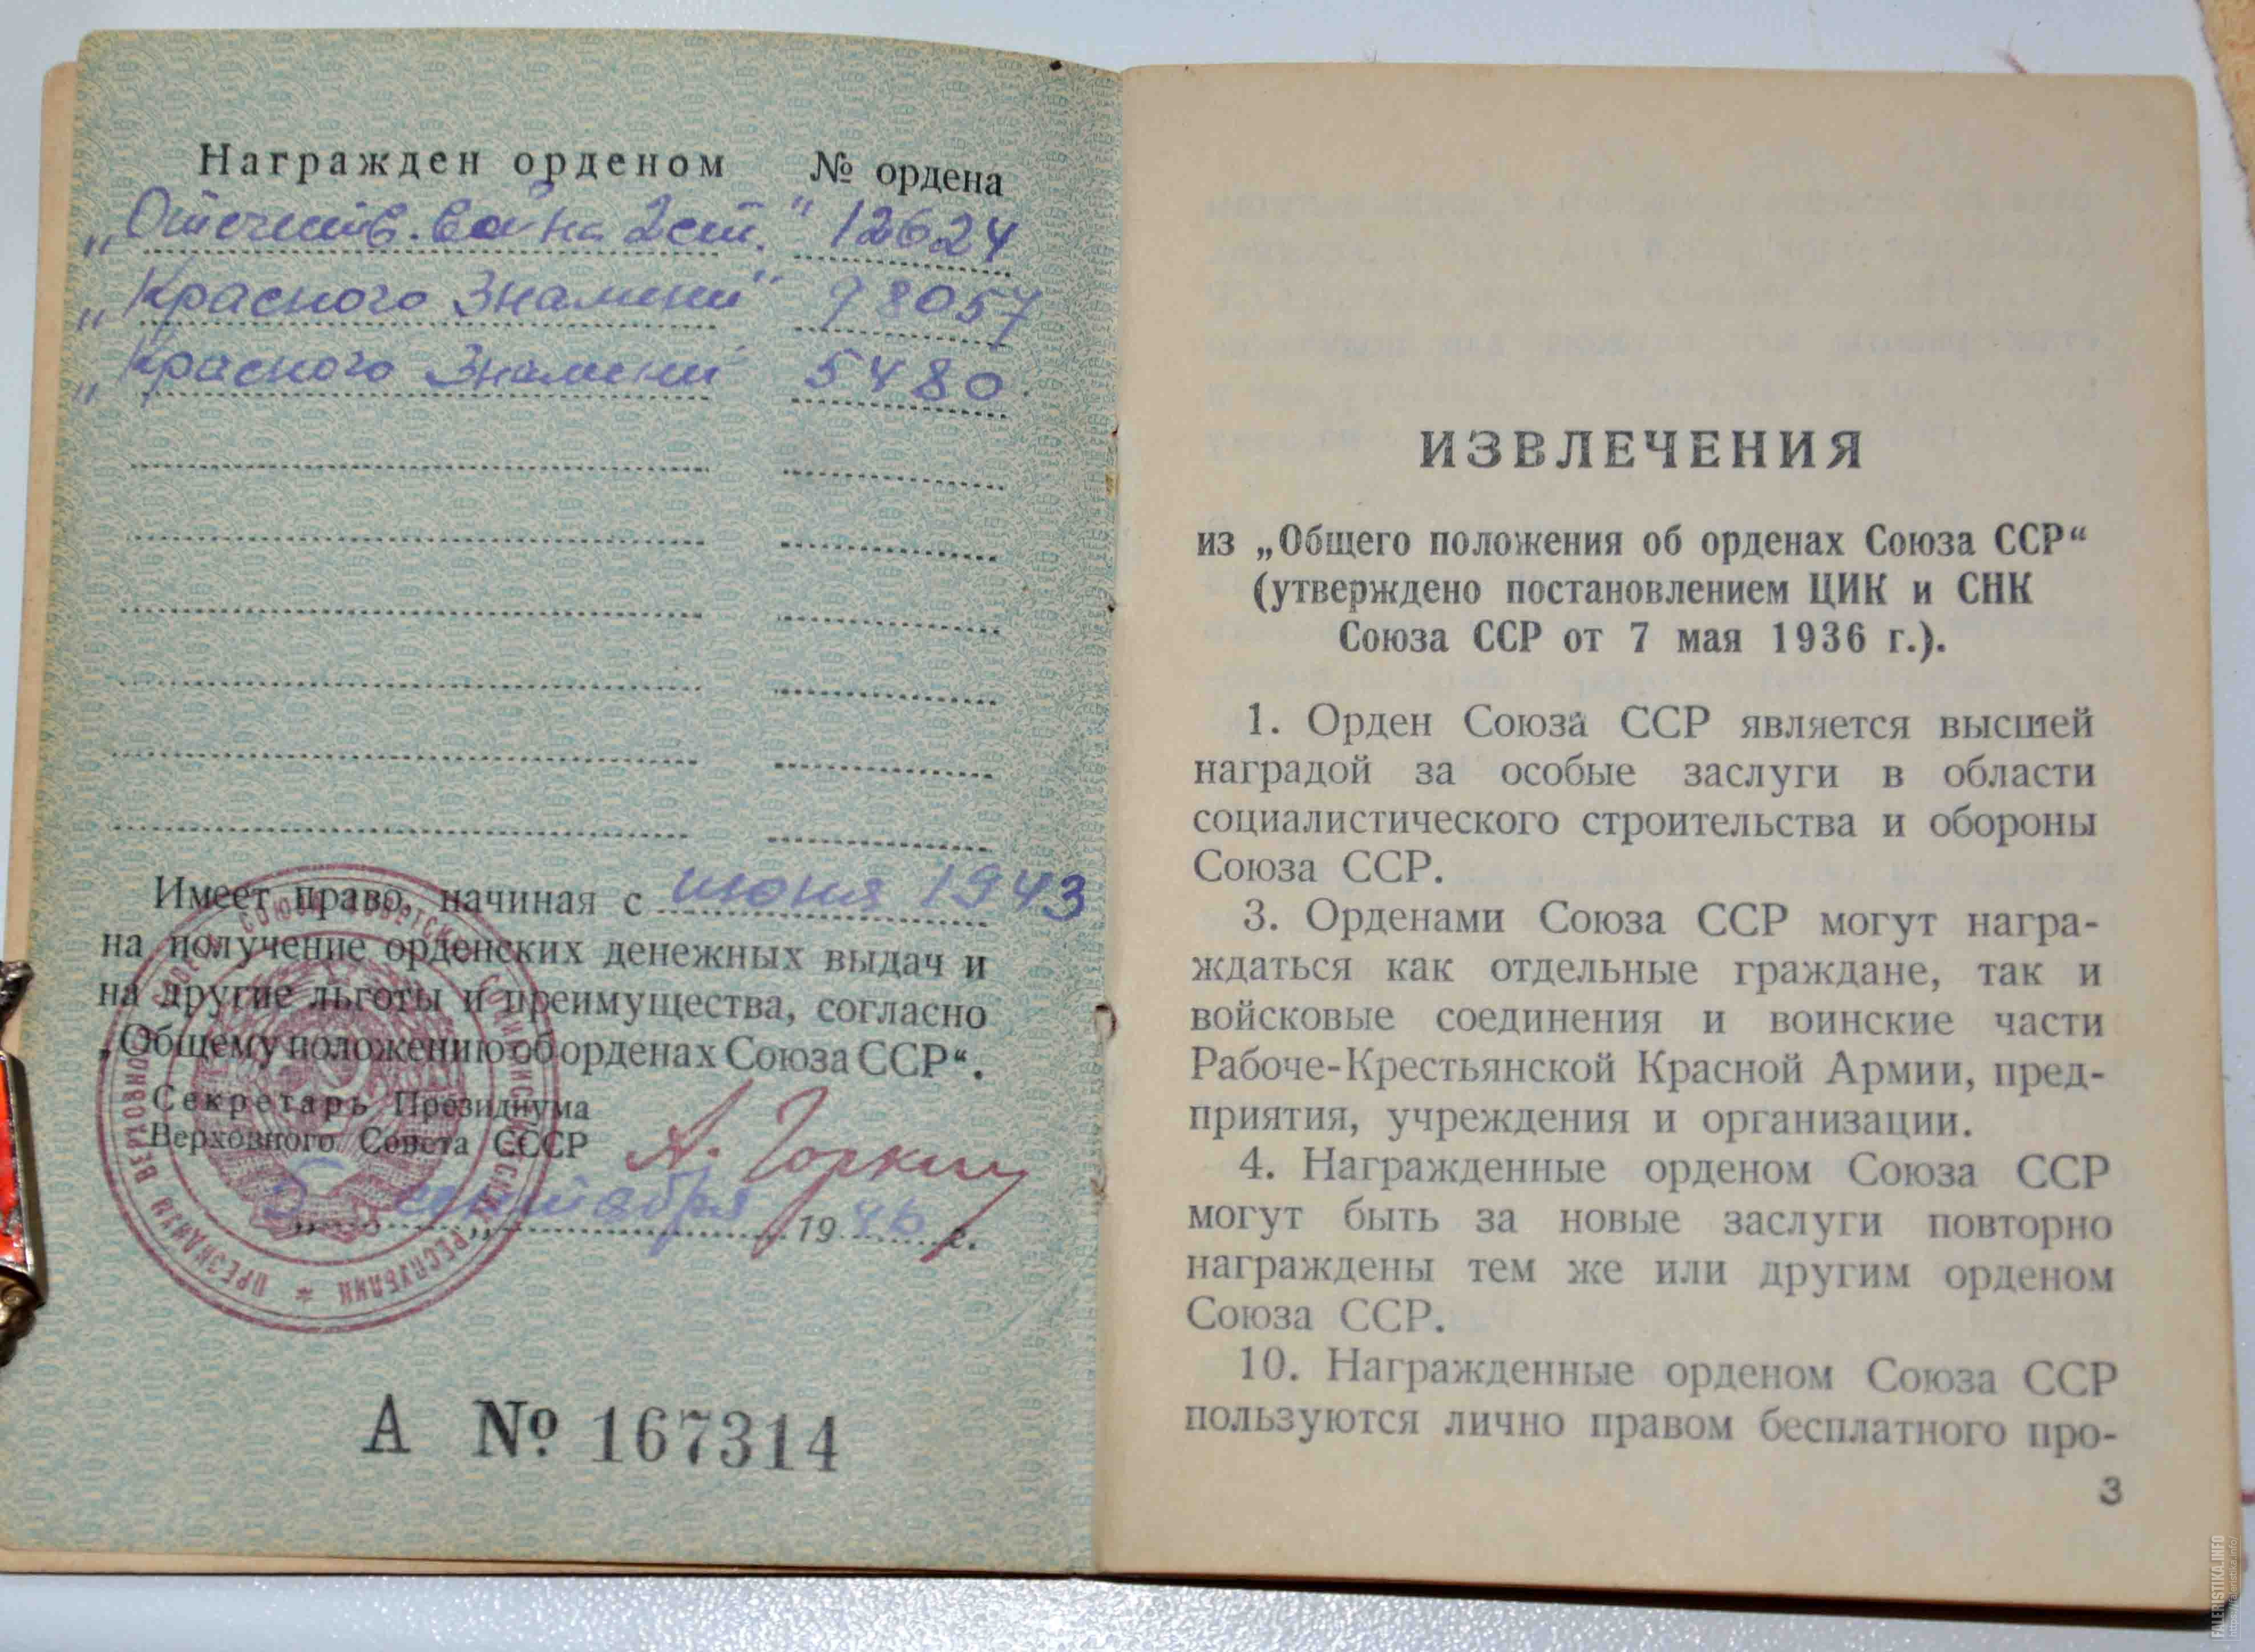 Награжден орденом № ордена
„Отечеств. война 2 ст." 12624
„Красного Знамени" 98057
„Красного Знамени" 5480
Имеет право, начиная с июня 1943
на получение орденских денежных выдач и
на другие льготы и преимущества, согласно
„Общему положению об орденах Союза ССР“.
Секретарь Президиума
Верховного Совета СССР А. Горкин
5 сентября 1946 г.
А № 167314
ИЗВЛЕЧЕНИЯ
из „Общего положения об орденах Союза ССР“
(утверждено постановлением ЦИК и СНК
Союза ССР от 7 мая 1936 г.).
1. Орден Союза ССР является высшей
наградой за особые заслуги в области
социалистического строительства и обороны
Союза ССР.
3. Орденами Союза ССР могут награ-
ждаться как отдельные граждане, так и
войсковые соединения и воинские части
Рабоче-Крестьянской Красной Армии, пред-
приятия, учреждения и организации.
4. Награжденные орденом Союза ССР
могут быть за новые заслуги повторно
награждены тем же или другим орденом
Союза ССР.
10. Награжденные орденом Союза ССР
пользуются лично правом бесплатного про-
3
FALERISTIKA.INFO
https://faleristika.info/